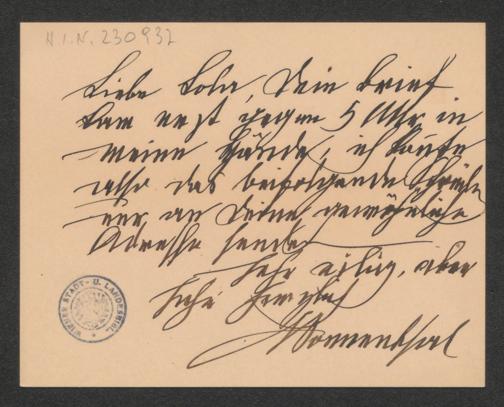 H.I.N. 230932
Liebe Lola, Dein Brief
kam erst gegen 5 Uhr in
meine Hände, ich konnte
also das beifolgende Schreiben
nur an Deine gewöhnliche
Adresse senden
Sehr eilig, aber
sehr herzlich
Sonnenthal
WIENER STADT- U. LANDESBIBL.